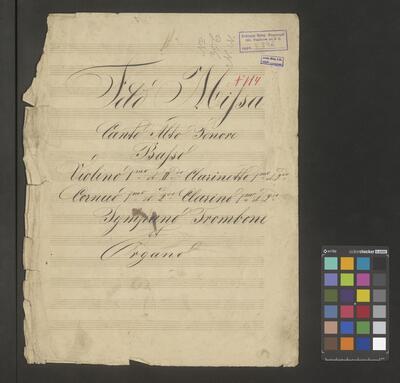 Fdo Missa
+114
Canto Alto Tenore
Basso
Violino 1mo et IIdo Clarinetto 1mo et 2do
Cornuo 1mo et 2do Clarino 1mo et 2do
Tympano Trombone
et
Organo